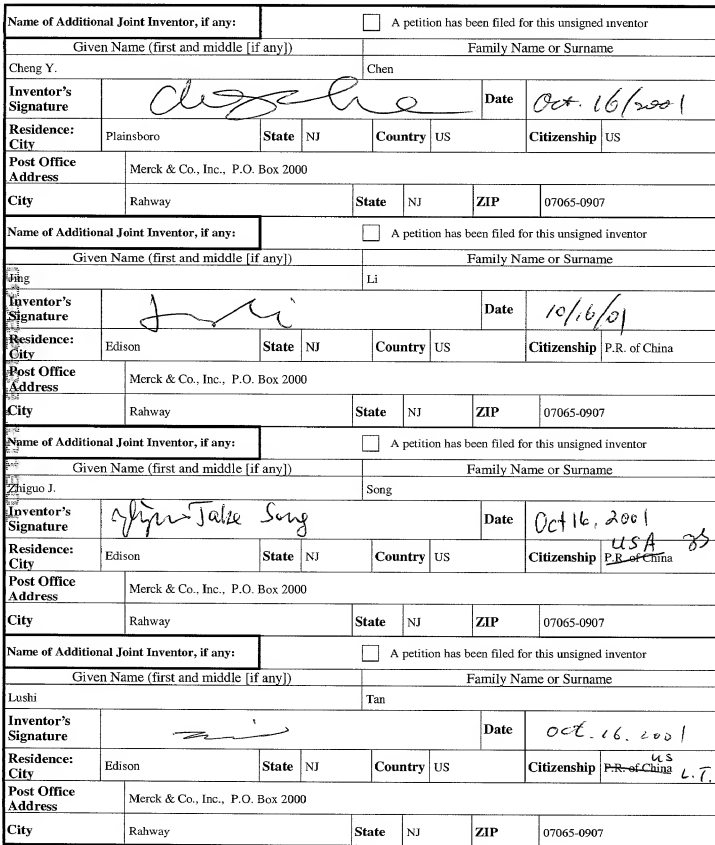 Name of Additional Joint Inventor, if any: A petition has been filed for this unsigned inventor
Given Name (first and middle [if any]) Family Name or Surname
Cheng Y. Chen
Inventor's Signature Date Oct. 16/2001
Residence: City Plainsboro State NJ Country US Citizenship US
Post Office Address Merck & Co., Inc., P.O. Box 2000
City Rahway State NJ ZIP 07065-0907
Name of Additional Joint Inventor, if any: A petition has been filed for this unsigned inventor
Given Name (first and middle [if any]) Family Name or Surname
Jing Li
Inventor's Signature Date 10/16/01
Residence: City Edison State NJ Country US Citizenship P.R. of China
Post Office Address Merck & Co., Inc., P.O. Box 2000
City Rahway State NJ ZIP 07065-0907
Name of Additional Joint Inventor, if any: A petition has been filed for this unsigned inventor
Given Name (first and middle [if any]) Family Name or Surname
Zhiguo J. Song
Inventor's Signature Song Date Oct 16, 2001
Residence: City Edison State NJ Country US Citizenship P.R. of China USA
Post Office Address Merck & Co., Inc., P.O. Box 2000
City Rahway State NJ ZIP 07065-0907
Name of Additional Joint Inventor, if any: A petition has been filed for this unsigned inventor
Given Name (first and middle [if any]) Family Name or Surname
Lushi Tan
Inventor's Signature Date oct. 16. 2001
Residence: City Edison State NJ Country US Citizenship P.R. of China US L.T.
Post Office Address Merck & Co., Inc., P.O. Box 2000
City Rahway State NJ ZIP 07065-0907